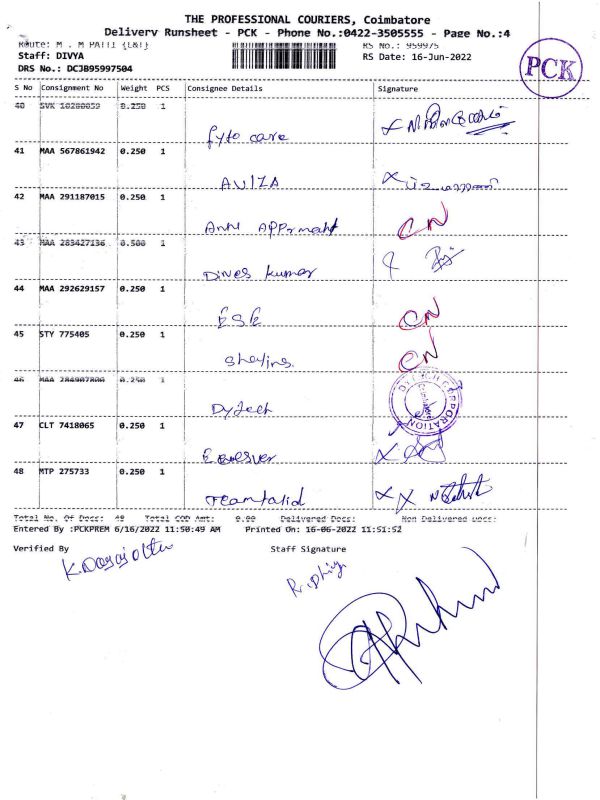 THE PROFESSIONAL COURIERS, Coimbatore
Delivery Runsheet - PCK - Phone No.:0422-3505555 - Page No.:4
Route: M . M PATTI {L&T} RS No.: 959975
Staff: DIVYA RS Date: 16-Jun-2022
DRS No.: DCJB95997504
PCK
S No Consignment No Weight PCS Consignee Details Signature
40 SVK 10280059 0.250 1
fyto care
41 MAA 567861942 0.250 1
AVIZA
42 MAA 291187015 0.250 1
CN
43 MAA 283427136 0.500 1
Dines kumar
44 MAA 292629157 0.250 1
ESE CN
45 STY 775405 0.250 1
CN
46 MAA 284907800 0.250 1
Dytech
CORPORATION
47 CLT 7418065 0.250 1
48 MTP 275733 0.250 1
Total No. Of Docs: 49 Total COD Amt: 0.00 Delivered Docs: Non Delivered Docs:
Entered By :PCKPREM 6/16/2022 11:50:49 AM Printed On: 16-06-2022 11:51:52
Verified By Staff Signature